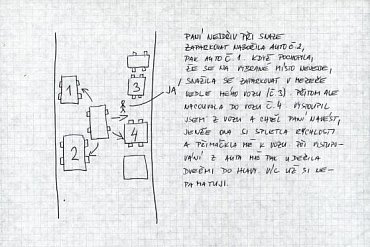 PANÍ NEJDŘÍV PŘI SNAZE
ZAPARKOVAT NABOŘILA AUTO Č.2,
PAK AUTO Č. 1. KDYŽ POCHOPILA,
ŽE SE NA VYBRANÉ MÍSTO NEVEJDE,
SNAŽILA SE ZAPARKOVAT V MEZEŘE
VEDLE MÉHO VOZU (Č. 3). PŘITOM ALE
NACOUVALA DO VOZU Č. 4. VYSTOUPIL
JSEM Z VOZU A CHTĚL PANÍ NAVÉST,
JENŽE ONA SI SPLETLA RYCHLOSTI
A PŘIMÁČKLA MĚ K VOZU. PŘI VYSTUPO-
VÁNÍ Z AUTA MĚ PAK UDEŘILA
DVEŘMI DO HLAVY. VÍC UŽ SI NE-
PAMATUJI.
JÁ
1
2
3
4